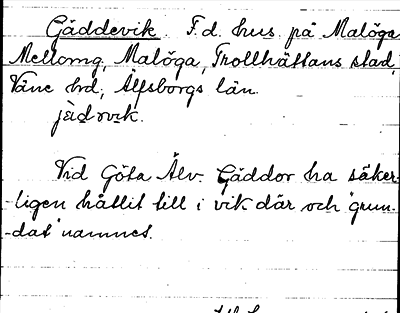 Gäddevik. F.d. hus på Malöga
Mellomg, Malöga, Trollhättans stad,
Väne hd, Älfsborgs län.
jädvik.
Vid Göta Älv. Gäddor ha säker-
-ligen hållit till i vik där och "grun-
-dat" namnet.